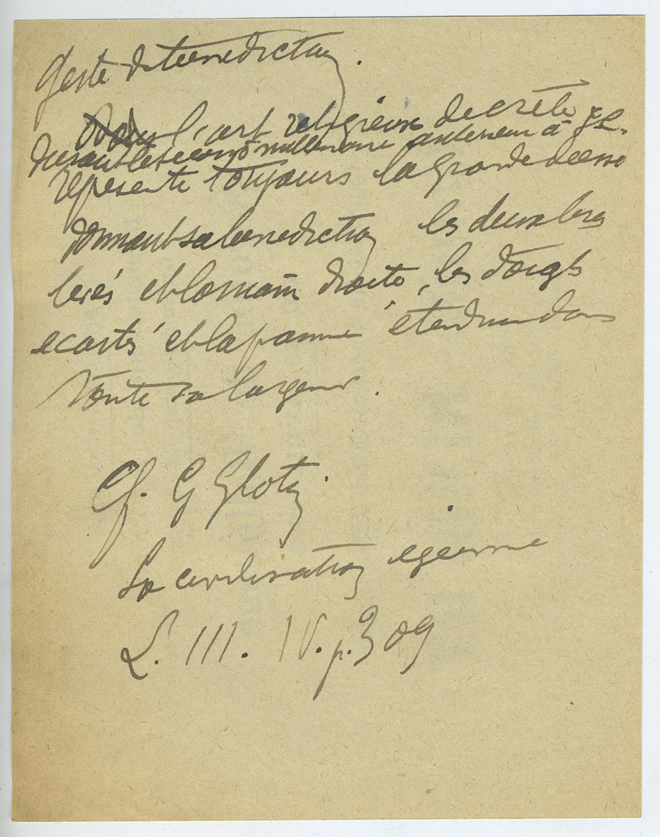 Geste de benediction.
l'art religieux de crète
durant le second millenaire anterieur à J.C.
represente toujours la grande deesse
donnant sa benediction les deux bras
levés et la main droite, les doigts
ecartés et la paume étendue dans
toute sa largeur.
Cf. G Glotz
La civilisation egeenne
L. III. IV. p. 309